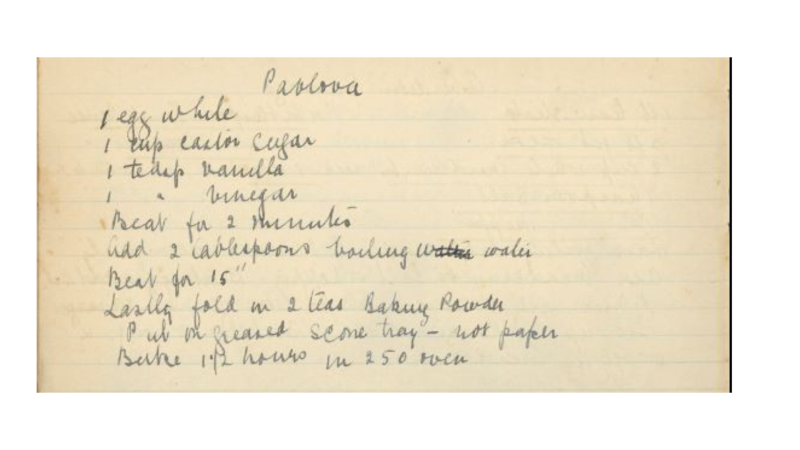 Pavlova
1 egg white
1 cup castor Sugar
1 teasp vanilla
1 " vinegar
Beat for 2 minutes
Add 2 tablespoons boiling water water
Beat for 15"
Lastly fold in 2 teas Baking Powder
Put on greased scone tray - not paper
1 1/2 hours in 250 oven